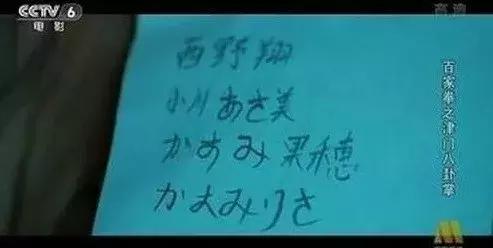 CCTV 6
电影
高清
西野翔
小川あさ美
かすみ果穂
かすみりさ
百家拳之津门八卦掌